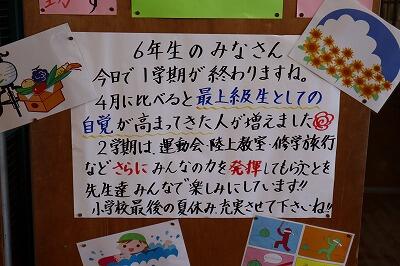 6年生のみなさん
今日で1学期が終わりますね。
4月に比べると最上級生としての
自覚が高まってきた人が増えました
2学期は、運動会・陸上教室・修学旅行
などさらにみんなの力を発揮してもらうことを
先生達みんなで楽しみにしています!!
小学校最後の夏休み、充実させて下さいね!!